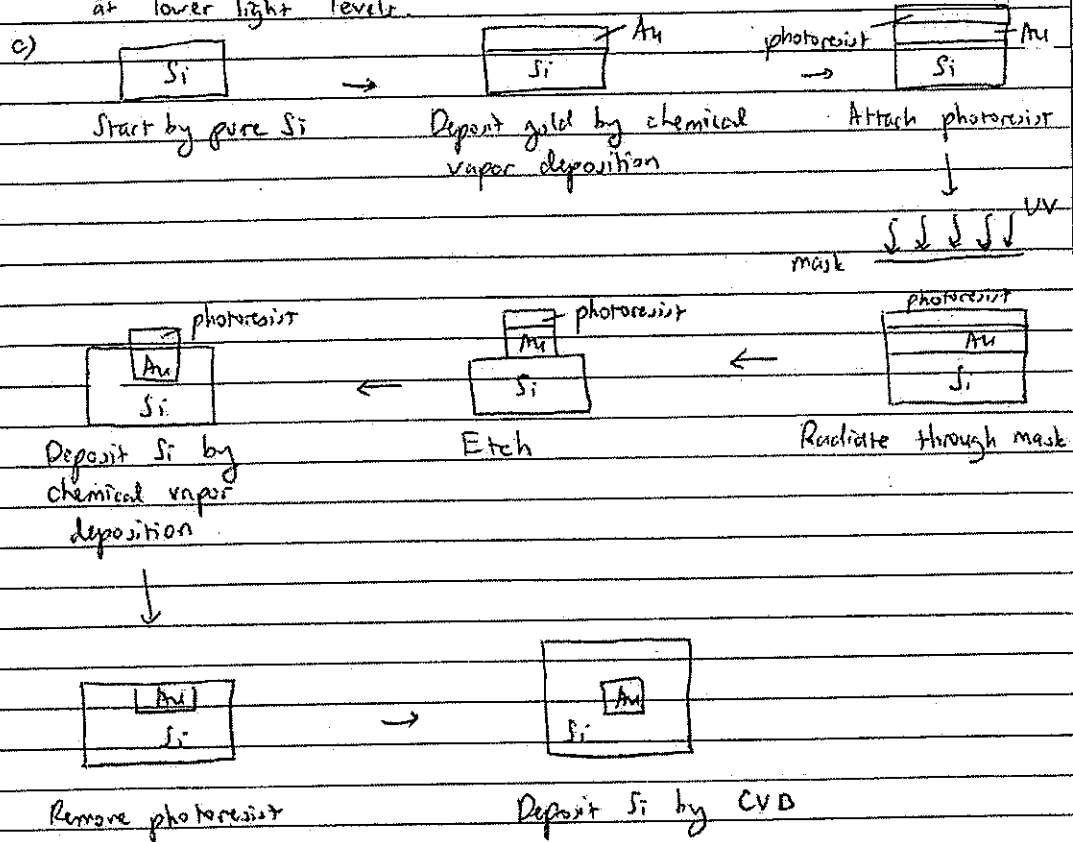 at lower light levels.
c)
Si
Au
Si
photoresist
Au
Si
Start by pure Si
Deposit gold by chemical
vapor deposition
Attach photoresist
UV
mask
photoresist
Au
Si
photoresist
Au
Si
photoresist
Au
Si
Deposit Si by
chemical vapor
deposition
Etch
Radiate through mask
Au
Si
Au
Si
Remove photoresist
Deposit Si by CVD